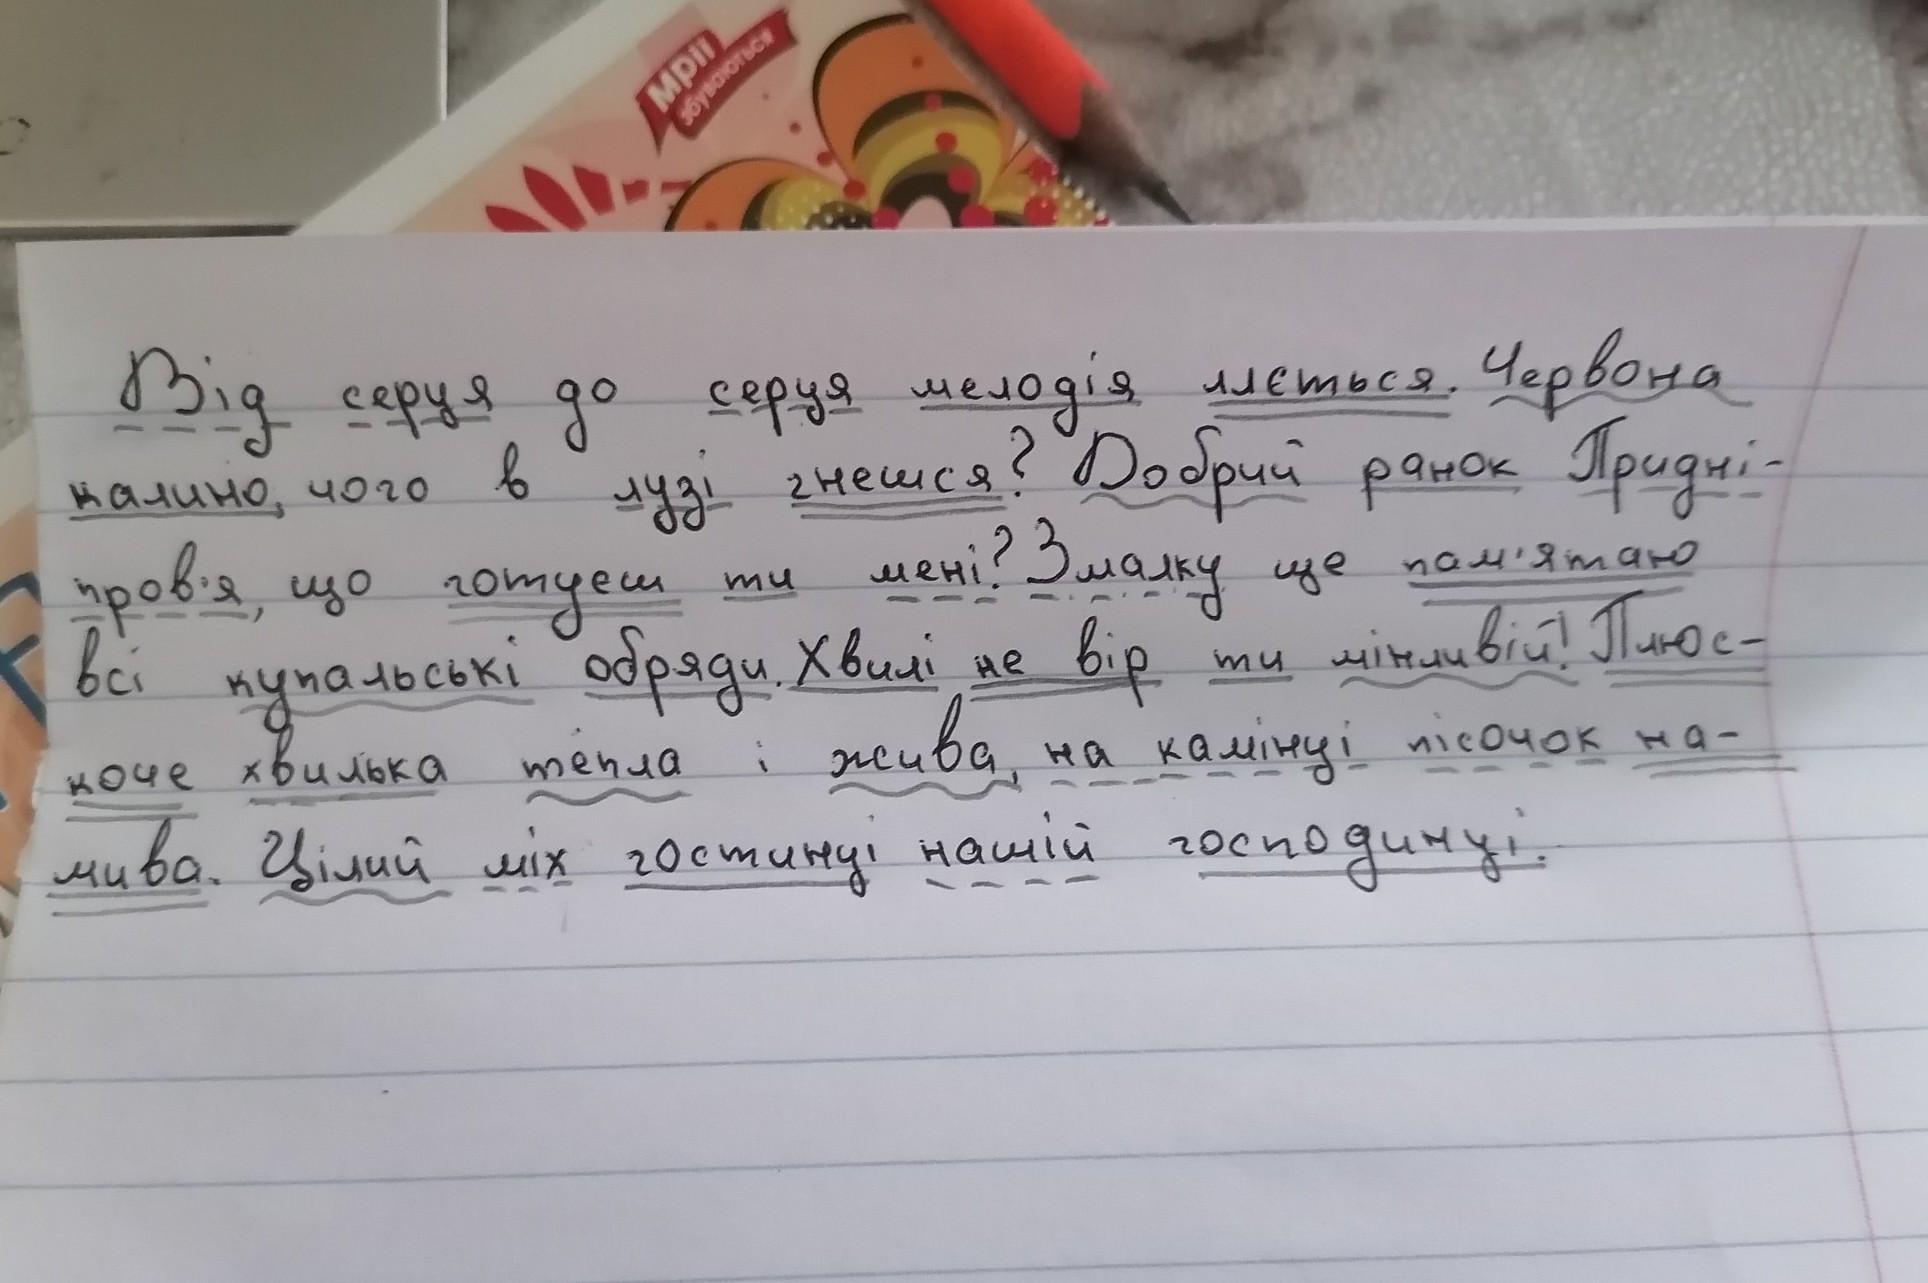 Мрії
збуваються
Від серця до серця мелодія ллється. Червона
калино, чого в лузі гнешся? Добрий ранок Придні-
пров'я, що готуєш ти мені? Змалку ще пам'ятаю
всі купальські обряди. Хвилі не вір ти мінливій! Плюс-
коче хвилька тепла і жива, на камінці пісочок на-
мива. Цілий міх гостинці нашій господинці.